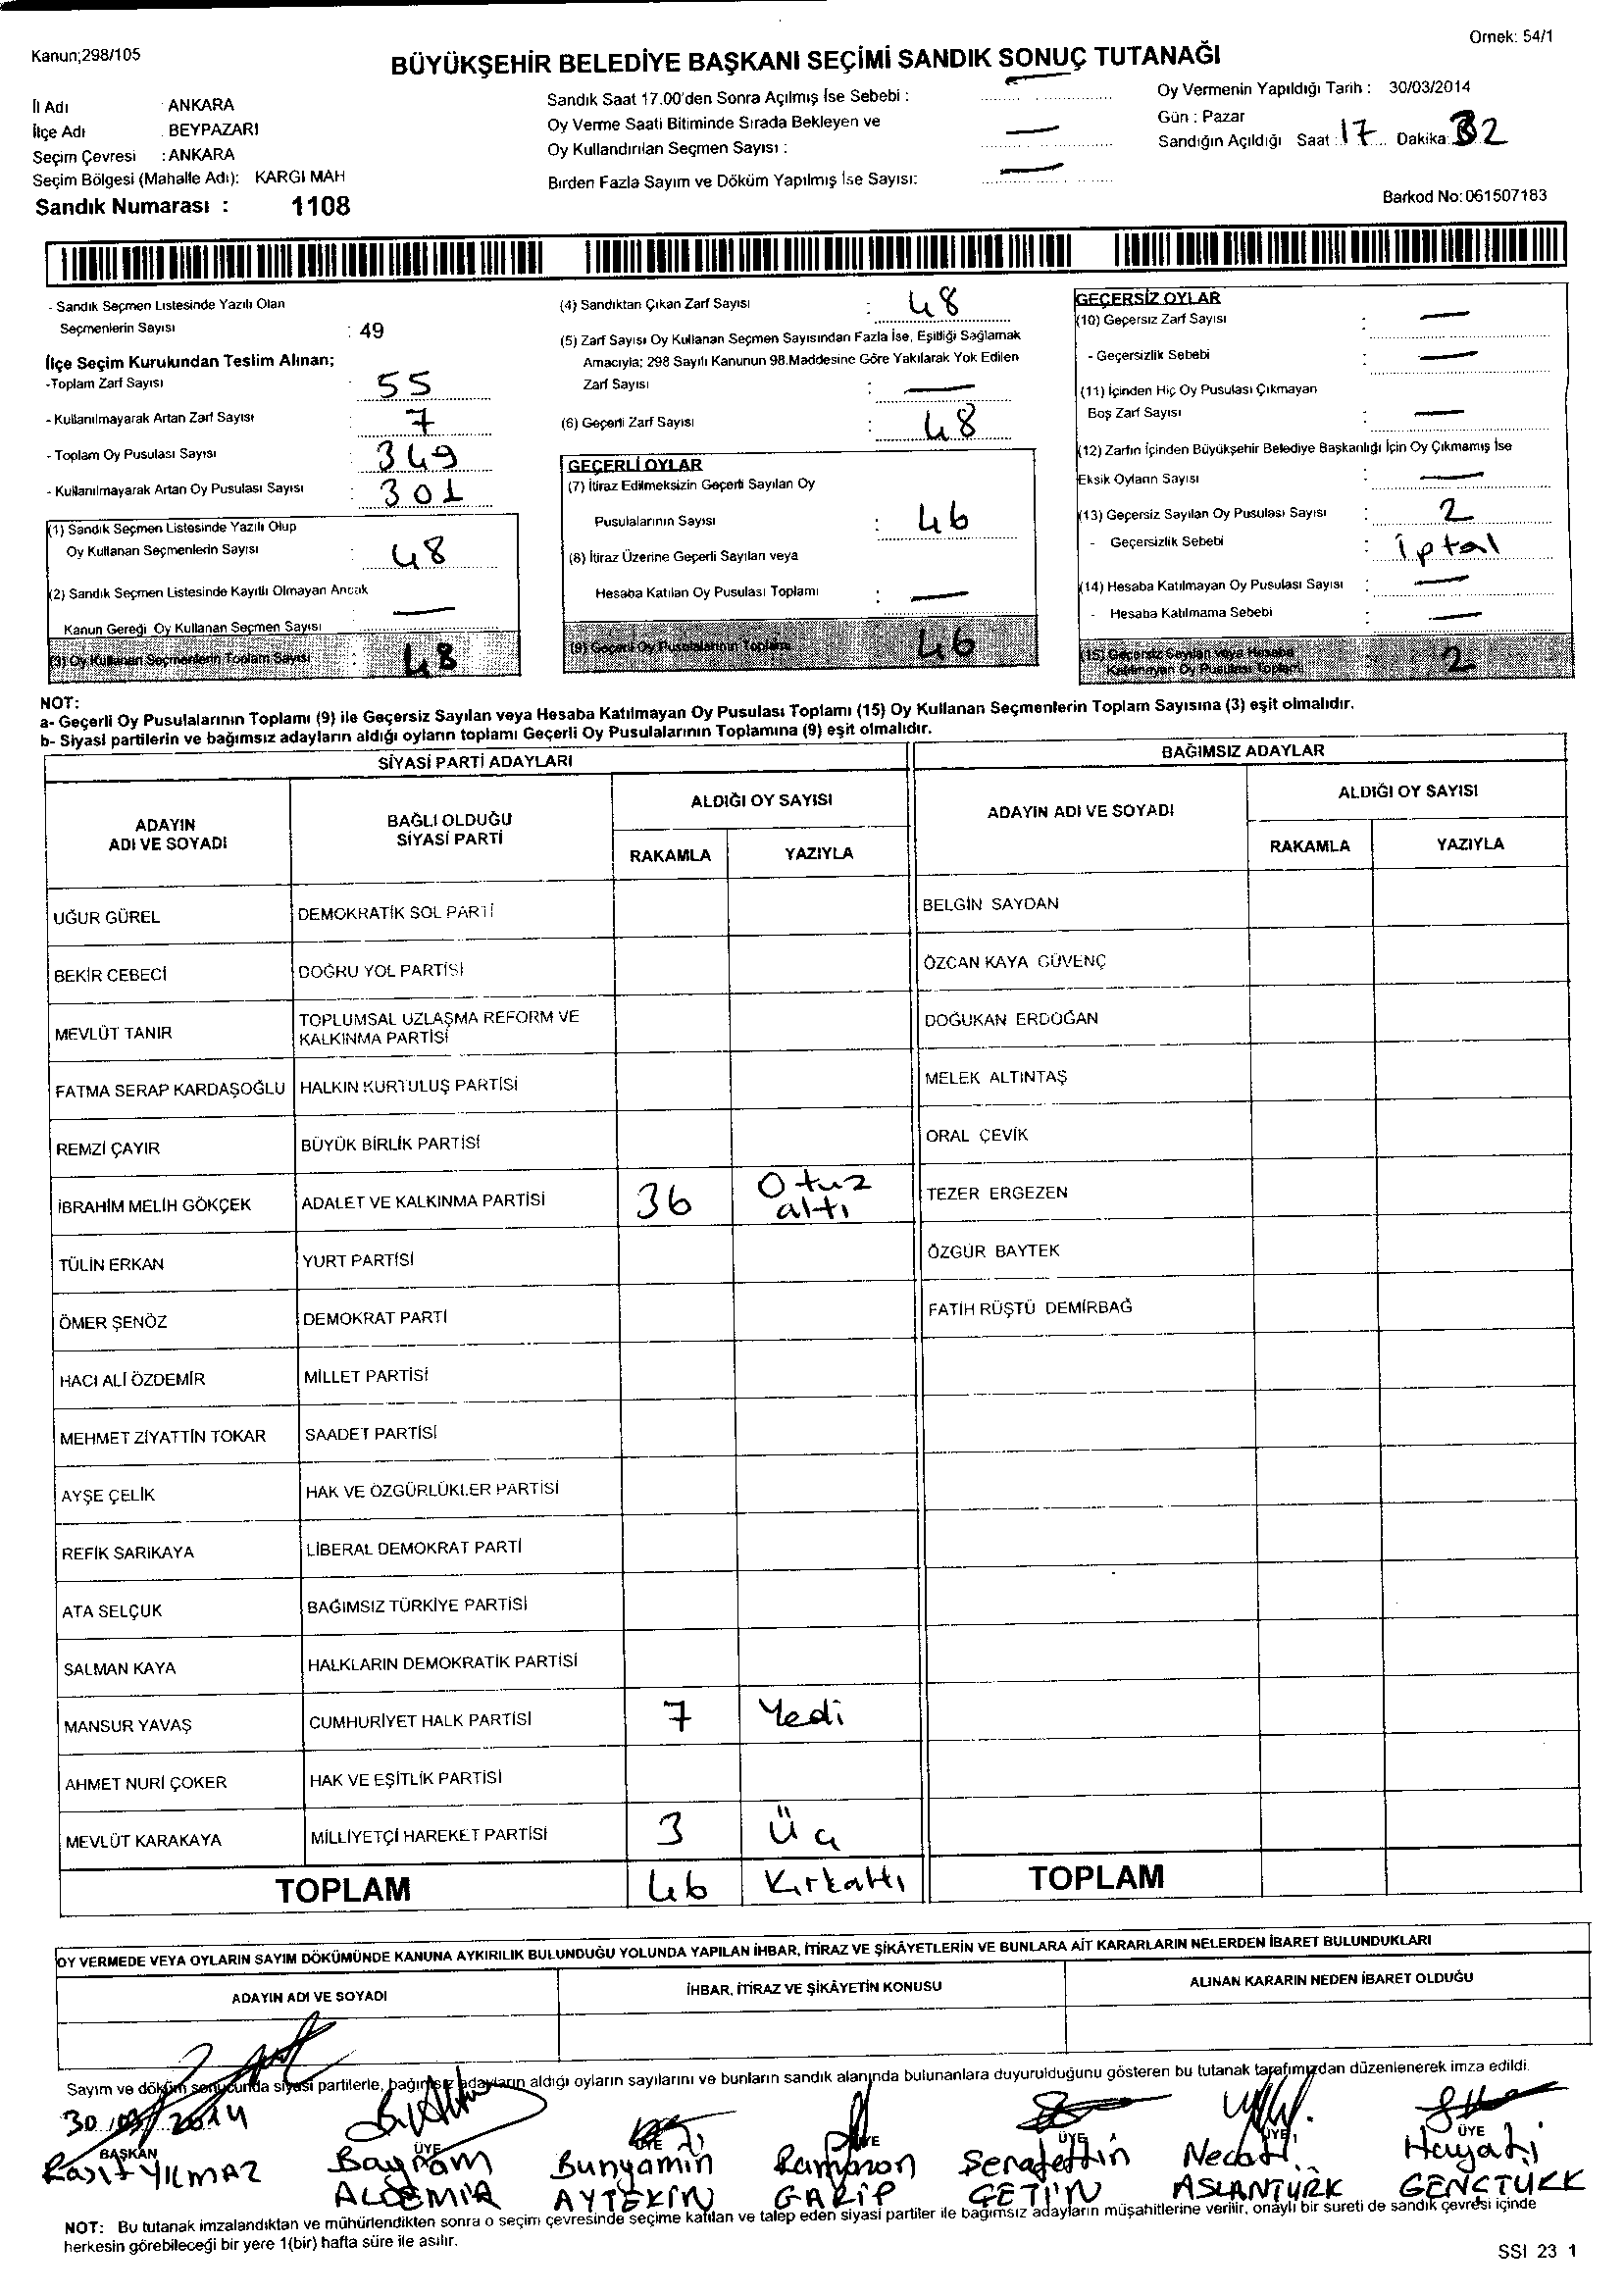 Kanun;298/105
Örnek: 54/1
BÜYÜKŞEHİR BELEDİYE BAŞKANI SEÇİMİ SANDIK SONUÇ TUTANAĞI
İl Adı : ANKARA
İlçe Adı : BEYPAZARI
Seçim Çevresi : ANKARA
Seçim Bölgesi (Mahalle Adı): KARGI MAH
Sandık Numarası : 1108
Sandık Saat 17.00'den Sonra Açılmış İse Sebebi : —
Oy Verme Saati Bitiminde Sırada Bekleyen ve
Oy Kullandırılan Seçmen Sayısı : —
Birden Fazla Sayım ve Döküm Yapılmış İse Sayısı: —
Oy Vermenin Yapıldığı Tarih : 30/03/2014
Gün : Pazar
Sandığın Açıldığı Saat : 17 Dakika: 32
Barkod No:061507183
- Sandık Seçmen Listesinde Yazılı Olan
Seçmenlerin Sayısı : 49
İlçe Seçim Kurulundan Teslim Alınan;
-Toplam Zarf Sayısı : 55
- Kullanılmayarak Artan Zarf Sayısı : 7
- Toplam Oy Pusulası Sayısı : 349
- Kullanılmayarak Artan Oy Pusulası Sayısı : 301
(1) Sandık Seçmen Listesinde Yazılı Olup
Oy Kullanan Seçmenlerin Sayısı : 48
(2) Sandık Seçmen Listesinde Kayıtlı Olmayan Ancak
Kanun Gereği Oy Kullanan Seçmen Sayısı : —
(3) Oy Kullanan Seçmenlerin Toplam Sayısı : 48
(4) Sandıktan Çıkan Zarf Sayısı : 48
(5) Zarf Sayısı Oy Kullanan Seçmen Sayısından Fazla İse, Eşitliği Sağlamak
Amacıyla; 298 Sayılı Kanunun 98.Maddesine Göre Yakılarak Yok Edilen
Zarf Sayısı : —
(6) Geçerli Zarf Sayısı : 48
GEÇERLİ OYLAR
(7) İtiraz Edilmeksizin Geçerli Sayılan Oy
Pusulalarının Sayısı : 46
(8) İtiraz Üzerine Geçerli Sayılan veya
Hesaba Katılan Oy Pusulası Toplamı : —
(9) Geçerli Oy Pusulalarının Toplamı 46
GEÇERSİZ OYLAR
(10) Geçersiz Zarf Sayısı : —
- Geçersizlik Sebebi : —
(11) İçinden Hiç Oy Pusulası Çıkmayan
Boş Zarf Sayısı : —
(12) Zarfın İçinden Büyükşehir Belediye Başkanlığı İçin Oy Çıkmamış İse
Eksik Oyların Sayısı : —
(13) Geçersiz Sayılan Oy Pusulası Sayısı : 2
- Geçersizlik Sebebi : iptal
(14) Hesaba Katılmayan Oy Pusulası Sayısı : —
- Hesaba Katılmama Sebebi : —
(15) Geçersiz Sayılan veya Hesaba
Katılmayan Oy Pusulası Toplamı 2
NOT:
a- Geçerli Oy Pusulalarının Toplamı (9) ile Geçersiz Sayılan veya Hesaba Katılmayan Oy Pusulası Toplamı (15) Oy Kullanan Seçmenlerin Toplam Sayısına (3) eşit olmalıdır.
b- Siyasi partilerin ve bağımsız adayların aldığı oyların toplamı Geçerli Oy Pusulalarının Toplamına (9) eşit olmalıdır.
SİYASİ PARTİ ADAYLARI
ADAYIN ADI VE SOYADI
BAĞLI OLDUĞU SİYASİ PARTİ
ALDIĞI OY SAYISI
RAKAMLA YAZIYLA
UĞUR GÜREL DEMOKRATİK SOL PARTİ
BEKİR CEBECİ DOĞRU YOL PARTİSİ
MEVLÜT TANIR TOPLUMSAL UZLAŞMA REFORM VE KALKINMA PARTİSİ
FATMA SERAP KARDAŞOĞLU HALKIN KURTULUŞ PARTİSİ
REMZİ ÇAYIR BÜYÜK BİRLİK PARTİSİ
İBRAHİM MELİH GÖKÇEK ADALET VE KALKINMA PARTİSİ 36 Otuz altı
TÜLİN ERKAN YURT PARTİSİ
ÖMER ŞENÖZ DEMOKRAT PARTİ
HACI ALİ ÖZDEMİR MİLLET PARTİSİ
MEHMET ZİYATTİN TOKAR SAADET PARTİSİ
AYŞE ÇELİK HAK VE ÖZGÜRLÜKLER PARTİSİ
REFİK SARIKAYA LİBERAL DEMOKRAT PARTİ
ATA SELÇUK BAĞIMSIZ TÜRKİYE PARTİSİ
SALMAN KAYA HALKLARIN DEMOKRATİK PARTİSİ
MANSUR YAVAŞ CUMHURİYET HALK PARTİSİ 7 Yedi
AHMET NURİ ÇOKER HAK VE EŞİTLİK PARTİSİ
MEVLÜT KARAKAYA MİLLİYETÇİ HAREKET PARTİSİ 3 Üç
TOPLAM 46 Kırkaltı
BAĞIMSIZ ADAYLAR
ADAYIN ADI VE SOYADI
ALDIĞI OY SAYISI
RAKAMLA YAZIYLA
BELGİN SAYDAN
ÖZCAN KAYA GÜVENÇ
DOĞUKAN ERDOĞAN
MELEK ALTINTAŞ
ORAL ÇEVİK
TEZER ERGEZEN
ÖZGÜR BAYTEK
FATİH RÜŞTÜ DEMİRBAĞ
TOPLAM
OY VERMEDE VEYA OYLARIN SAYIM DÖKÜMÜNDE KANUNA AYKIRILIK BULUNDUĞU YOLUNDA YAPILAN İHBAR, İTİRAZ VE ŞİKÂYETLERİN VE BUNLARA AİT KARARLARIN NELERDEN İBARET BULUNDUKLARI
ADAYIN ADI VE SOYADI
İHBAR, İTİRAZ VE ŞİKÂYETİN KONUSU
ALINAN KARARIN NEDEN İBARET OLDUĞU
Sayım ve döküm sonucunda siyasi partilerle, bağımsız adayların aldığı oyların sayılarını ve bunların sandık alanında bulunanlara duyurulduğunu gösteren bu tutanak tarafımızdan düzenlenerek imza edildi.
30/03/2014
BAŞKAN ÜYE ÜYE ÜYE ÜYE ÜYE ÜYE
Raşit YILMAZ
Bayram ALDEMİR
Bunyamin AYTEKİN
Ramazan GARİP
Serafettin ÇETİN
Necati ASLANTÜRK
Hayati GENÇTÜRK
NOT: Bu tutanak imzalandıktan ve mühürlendikten sonra o seçim çevresinde seçime katılan ve talep eden siyasi partiler ile bağımsız adayların müşahitlerine verilir, onaylı bir sureti de sandık çevresi içinde
herkesin görebileceği bir yere 1(bir) hafta süre ile asılır.
SSI 23 1